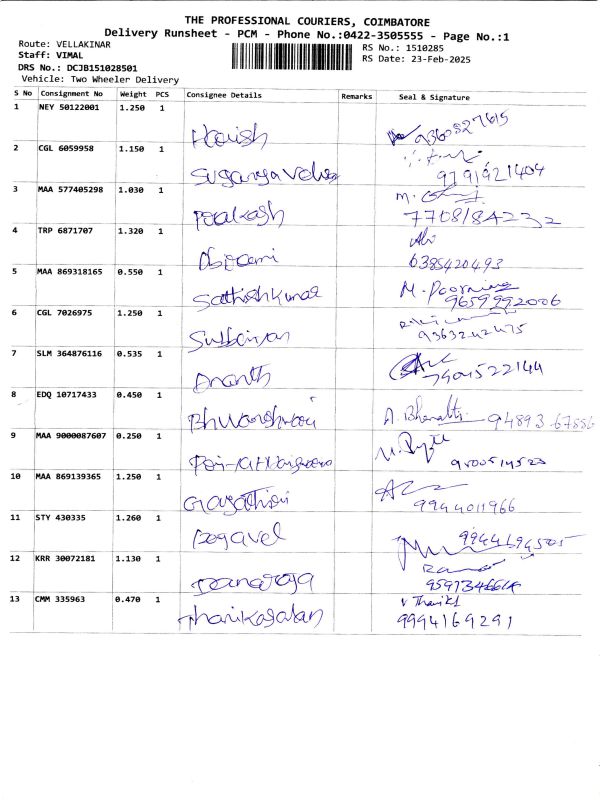 THE PROFESSIONAL COURIERS, COIMBATORE
Delivery Runsheet - PCM - Phone No.:0422-3505555 - Page No.:1
Route: VELLAKINAR
RS No.: 1510285
Staff: VIMAL
RS Date: 23-Feb-2025
DRS No.: DCJB151028501
Vehicle: Two Wheeler Delivery
S No Consignment No Weight PCS Consignee Details Remarks Seal & Signature
1 NEY 50122001 1.250 1
Harish 9360827615
2 CGL 6059958 1.150 1
Suganya 9791921404
3 MAA 577405298 1.030 1 M.
Prakash
4 TRP 6871707 1.320 1 Abi
6385420493
5 MAA 869318165 0.550 1 M. Poornima
Sathishkumar 9659992006
6 CGL 7026975 1.250 1
9363242475
7 SLM 364876116 0.535 1
Ananth
8 EDQ 10717433 0.450 1
A. Bharathi 94893-67886
9 MAA 9000087607 0.250 1
9500514523
10 MAA 869139365 1.250 1
Gayathiri 9944011966
11 STY 430335 1.260 1
12 KRR 30072181 1.130 1
13 CMM 335963 0.470 1
9994169291